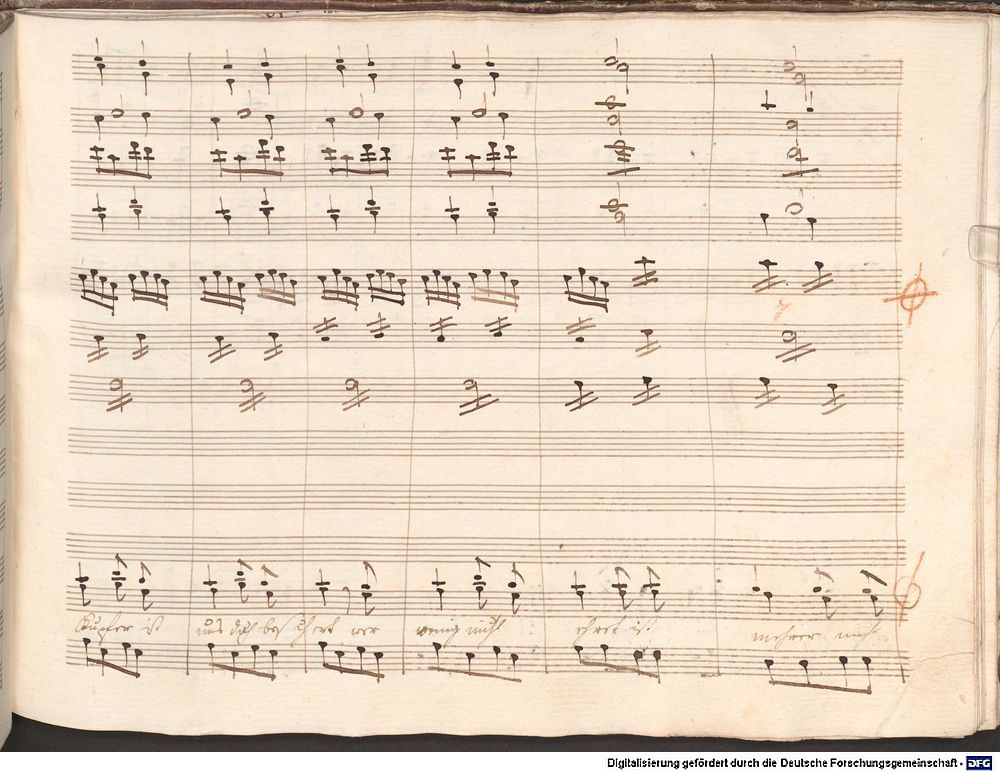 Kupfer ist uns doch bescheret wer wenig nicht ehret ist mehrer nicht
Digitalisierung gefördert durch die Deutsche Forschungsgemeinschaft - DFG